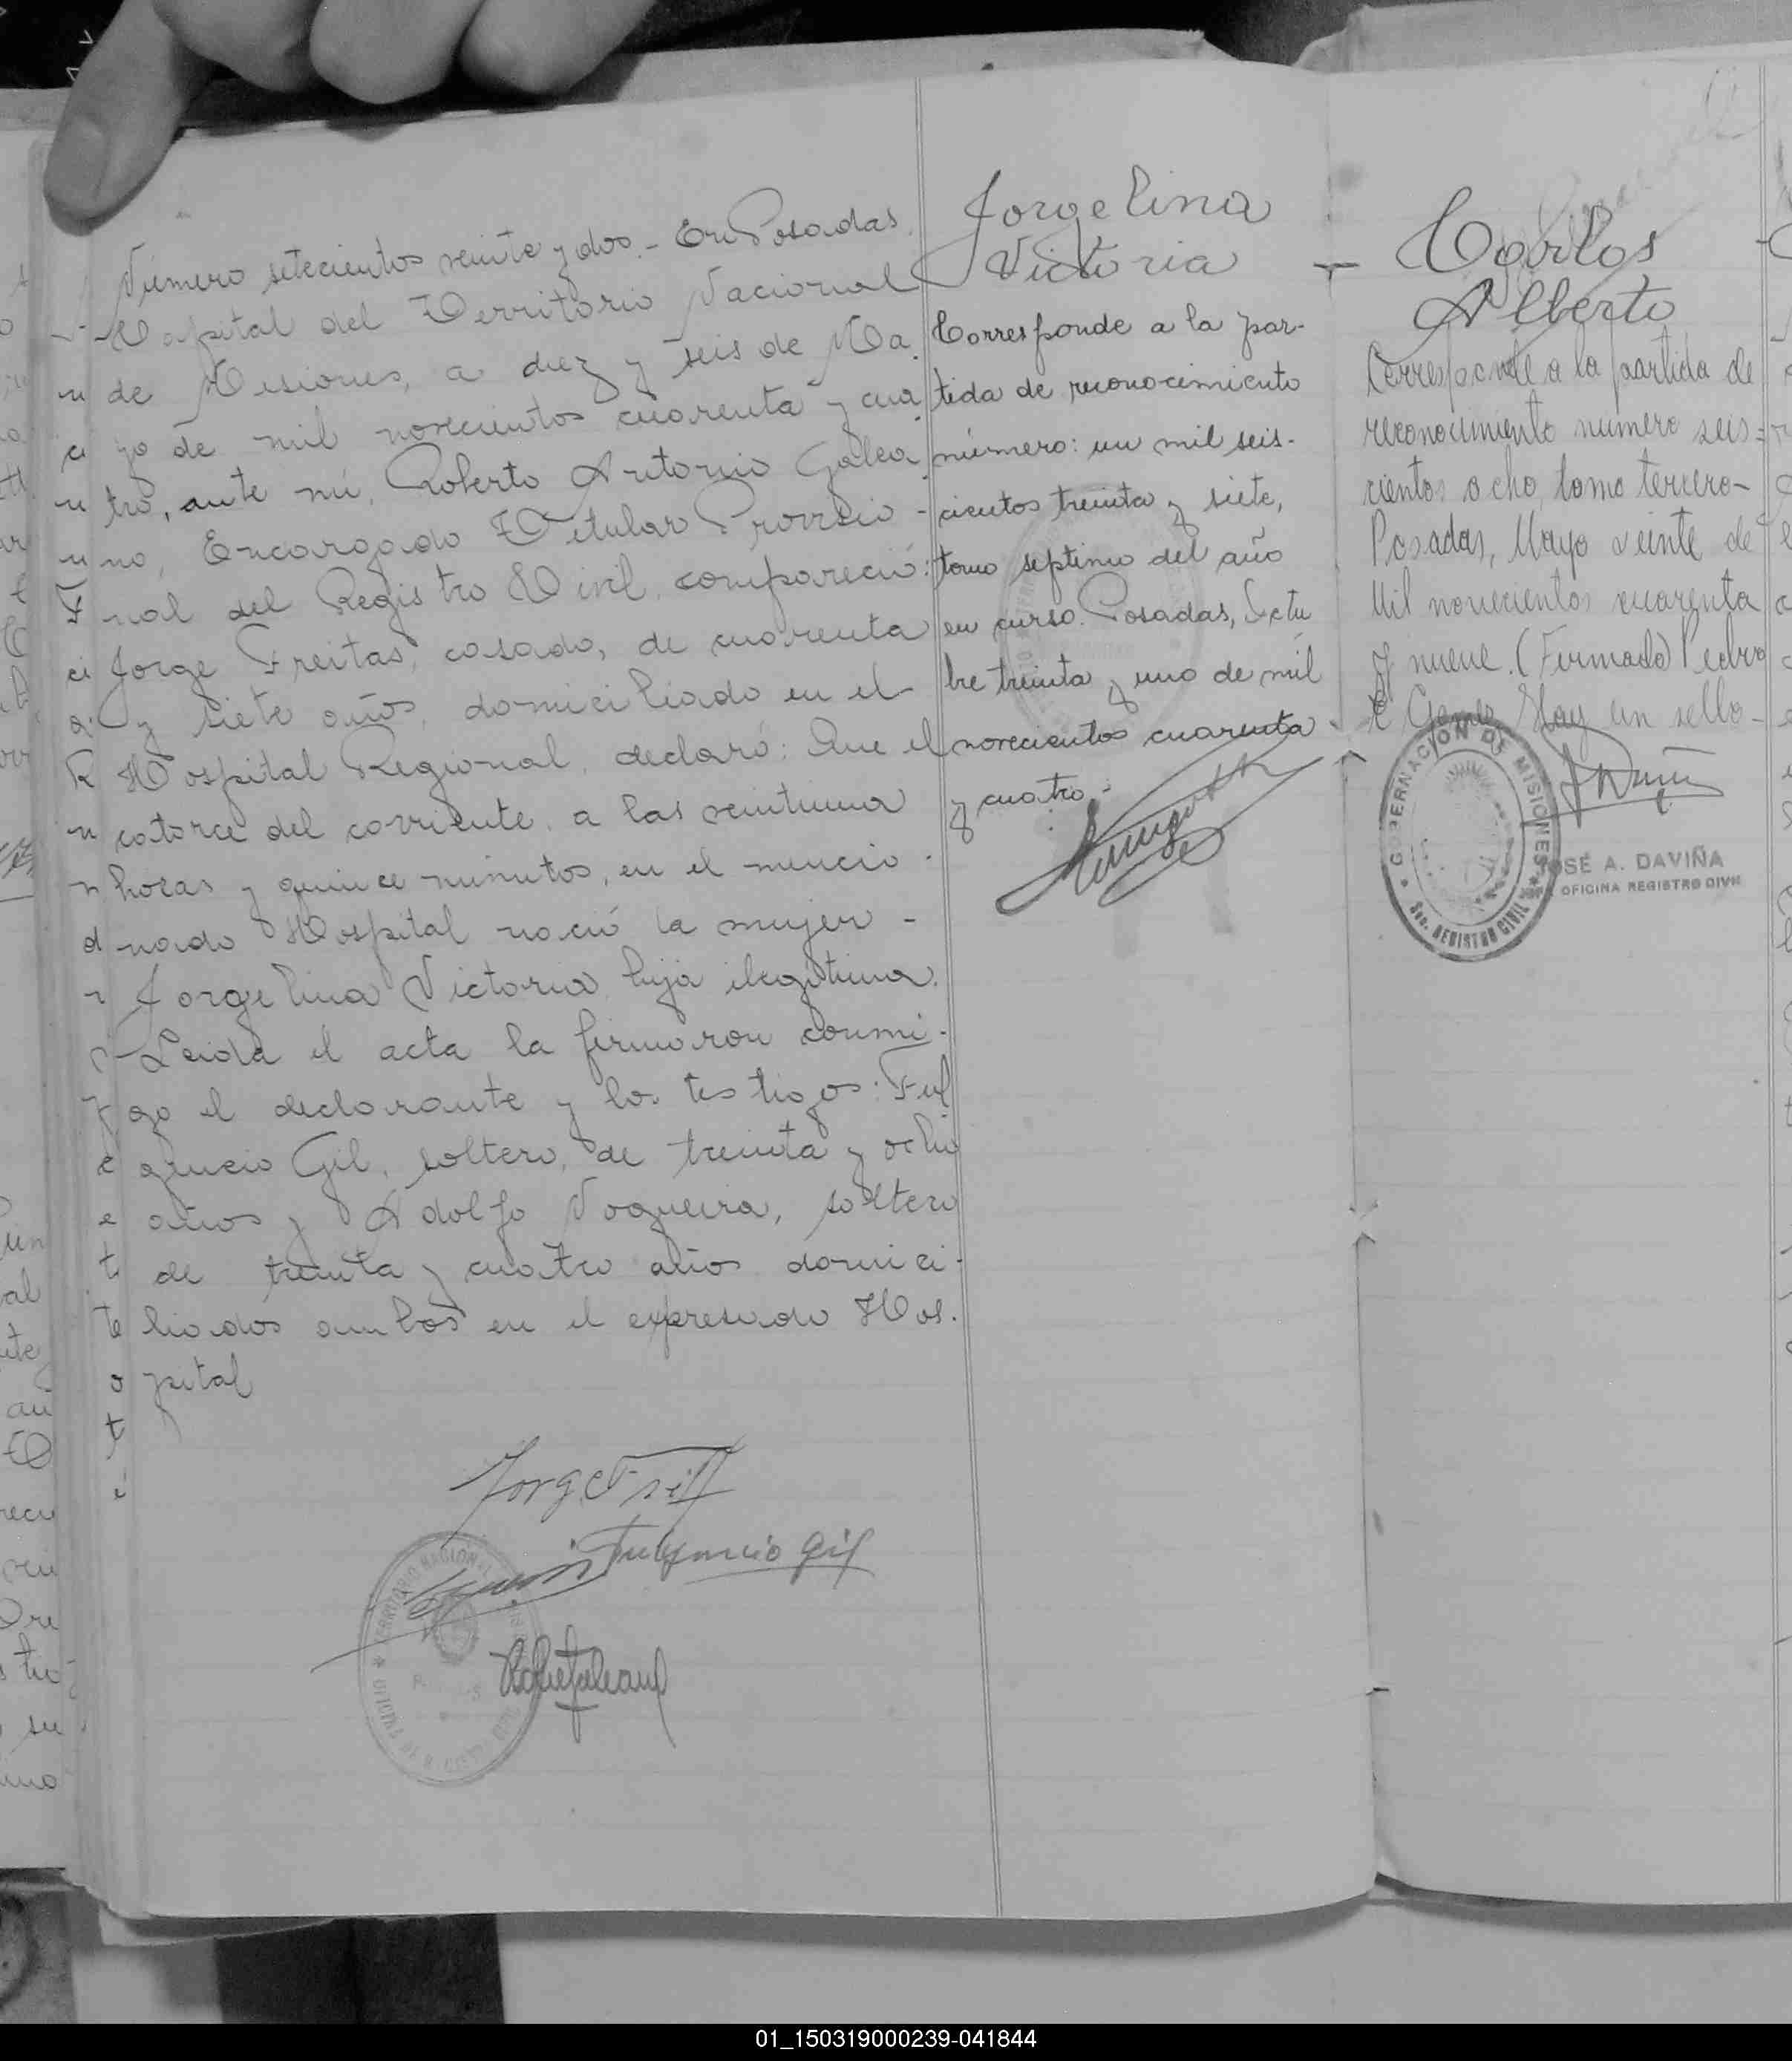 Número setecientos veinte y dos.- En Posadas,
Capital del Territorio Nacional
de Misiones, a diez y seis de Ma
yo de mil novecientos cuarenta y cua
tro, ante mí, Roberto Antonio Galea
no, Encargado Titular Provisio-
nal del Registro Civil, compareció:
Jorge Freitas, casado, de cuarenta
y siete años, domiciliado en el
Hospital Regional, declaró: Que el
catorce del corriente, a las veintiuna
horas y quince minutos, en el mencio-
nado Hospital nació la mujer-
Jorgelina Victoria, hija ilegitima.
Leida el acta la firmaron conmi-
go el declarante y los testigos: Ful
gencio Gil, soltero, de treinta y ocho
años y Adolfo Nogueira, soltero
de treinta y cuatro años domici-
liados ambos en el expresado Hos-
pital
Fulgencio Gil
TERRITORIO NACIONAL
Jorgelina
Victoria
Corresponde a la par-
tida de reconocimiento
número: un mil seis-
cientos treinta y siete,
tomo septimo del año
en curso. Posadas, Octu
bre treinta y uno de mil
novecientos cuarenta
y cuatro.-
Carlos
Alberto
Corresponde a la partida de
reconocimiento numero seis=
cientos ocho, tomo tercero-
Posadas, Mayo veinte de
Mil novecientos cuarenta
y nueve. (Firmado) Pedro
Hay un sello-
GOBERNACION DE MISIONES
Sec. REGISTRO CIVIL
JOSÉ A. DAVIÑA
OFICINA REGISTRO CIVIL
01_150319000239-041844